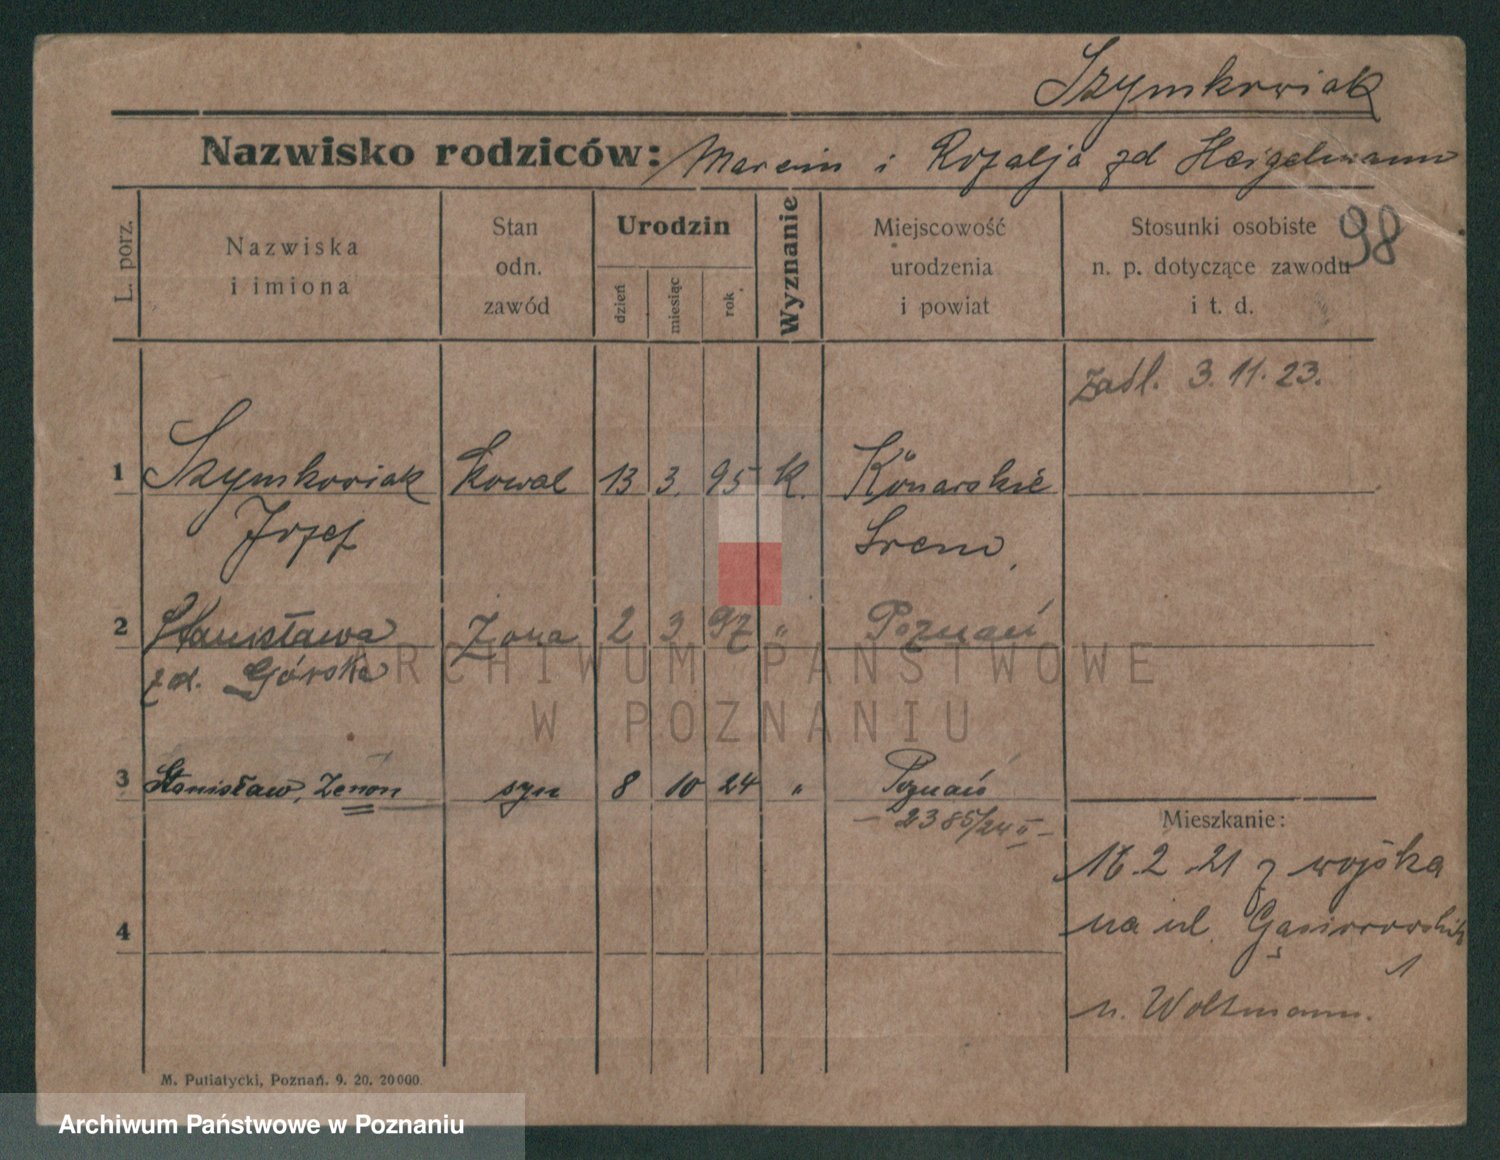 Szymkowiak
Nazwisko rodziców: Marcin i Rozalja zd Heigelmann
98
L. porz.
Nazwiska i imiona
Stan odn. zawód
Urodzin
dzień miesiąc rok
Wyznanie
Miejscowość urodzenia i powiat
Stosunki osobiste n. p. dotyczące zawodu i t. d.
zaśl. 3. 11. 23.
1 Szymkowiak Kowal 13 3. 95 K. Konarskie
Józef Śrem,
2 Stanisława Żona 2 3 97 " Poznań
zd. Górska
3 Stanisław, Zenon syn 8 10 24 " Poznań
- 2385/24 II -
Mieszkanie:
16. 2. 21 z wojska
4 na ul. Gąsiorowskich
1
u. Woltmann.
M. Putiatycki, Poznań. 9. 20. 20000.
ARCHIWUM PAŃSTWOWE
W POZNANIU
Archiwum Państwowe w Poznaniu